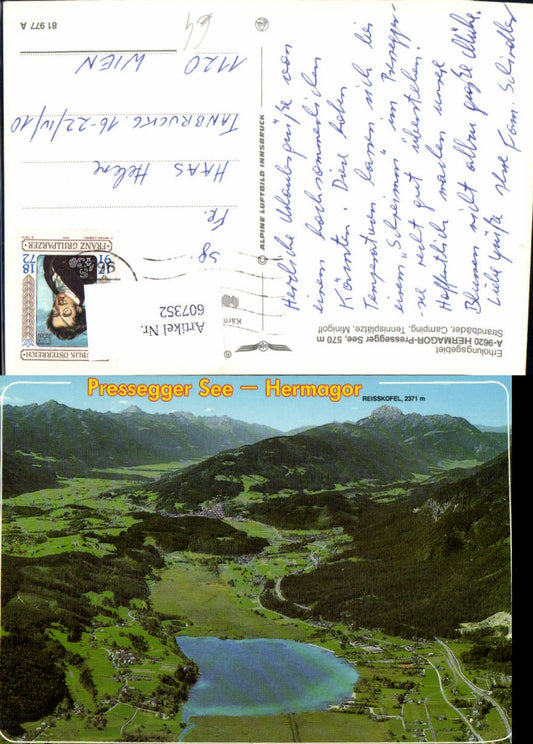 81 977 A
64
1120 WIEN
TANBRUCKG. 16-22/IV/10
HAAS Helene
Fr.
REPUBLIK ÖSTERREICH
FRANZ GRILLPARZER
18 91
72 91
Artikel Nr.
607352
© ALPINE LUFTBILD INNSBRUCK
Herzliche Urlaubsgrüße von
einem hochsommerlichen
Kärnten! Diese hohen
Temperaturen lassen sich bei
einem "Schwimm" im Pressegger-
see recht gut überstehen!
Hoffentlich machen unsere
Blumen nicht allzu große Mühe.
Liebe Grüße Ihre Fam. Schindler
Erholungsgebiet
A-9620 HERMAGOR-Pressegger See, 570 m
Strandbäder, Camping, Tennisplätze, Minigolf
Pressegger See — Hermagor
REISSKOFEL, 2371 m